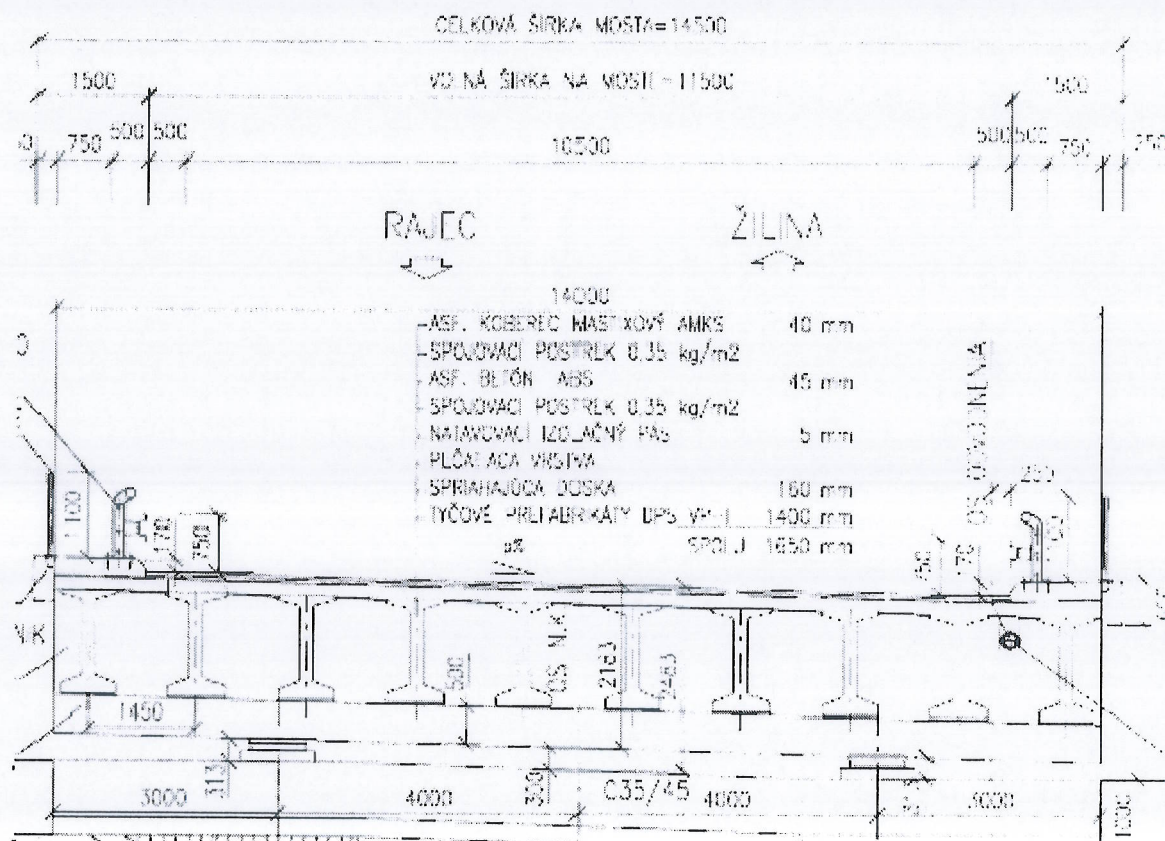 CELKOVÁ ŠÍRKA MOSTA=14500
1500 VOĽNÁ ŠÍRKA NA MOSTE=11500 1500
750 500 500 10500 500 500 750 250
RAJEC ŽILINA
14000
ASF. KOBEREC MASTIXOVÝ AMKS 40 mm
SPOJOVACÍ POSTREK 0.35 kg/m2
ASF. BETÓN ABS 45 mm
SPOJOVACÍ POSTREK 0.35 kg/m2
NATAVOVACÍ IZOLAČNÝ PÁS 5 mm
VRSTVA
SPRIAHAJÚCA DOSKA 160 mm
TYČOVÉ PREFABRIKÁTY DPS 1400 mm
SPOLU 1650 mm
OS ODVODNENIA
250
1100
170
750
50
70
OS N.K.
500
2163
2463
1450
313
300
C35/45
3000 4000 4000 3000